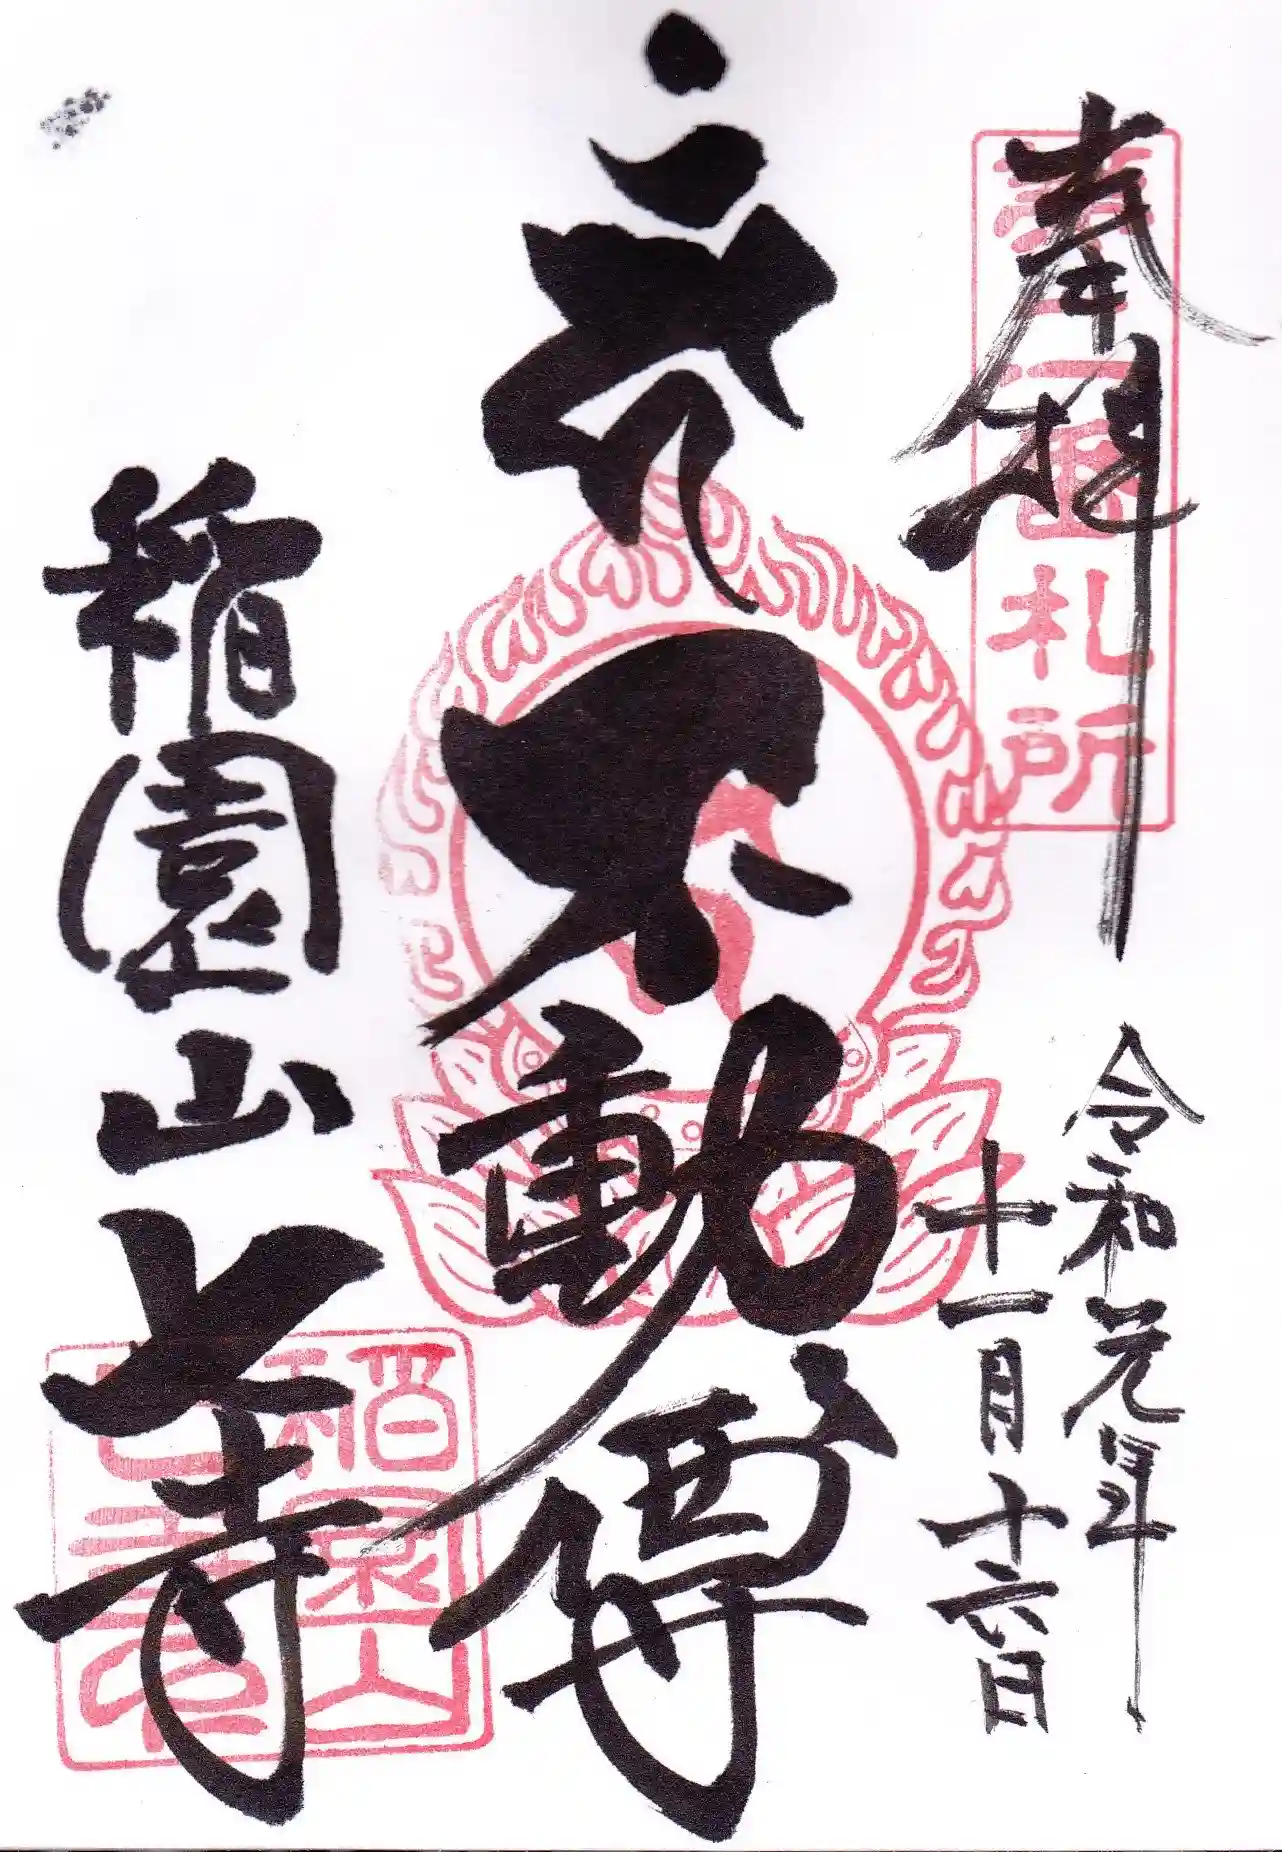 奉拝
番札所
令和元年
十一月十六日
不動尊
稲園山
七寺
稲園山
七寺